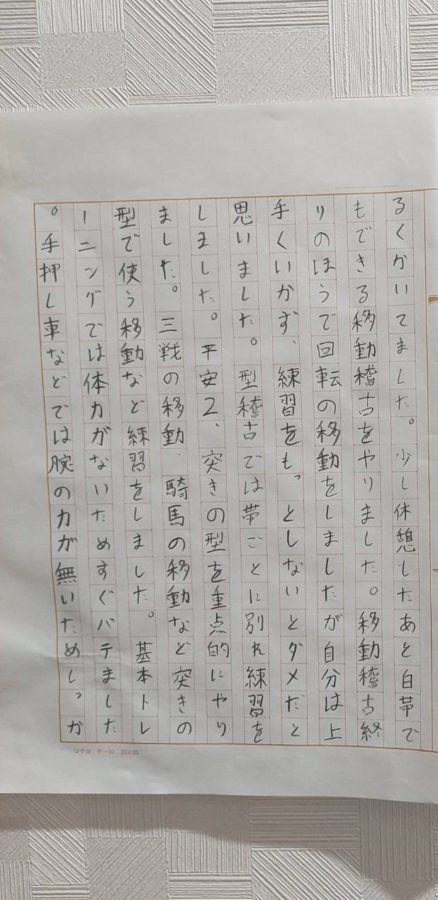 るくかいてました。少し休憩したあと白帯で
もできる移動稽古をやりました。移動稽古終
りのほうで回転の移動をしましたが自分は上
手くいかず、練習をもっとしないとダメだと
思いました。型稽古では帯ごとに別れ練習を
しました。平安2、突きの型を重点的にやり
ました。三戦の移動、騎馬の移動など突きの
型で使う移動など練習をしました。基本トレ
ーニングでは体力がないためすぐバテました
。手押し車などでは腕の力が無いためしっか
コクヨ ケー10 20×20